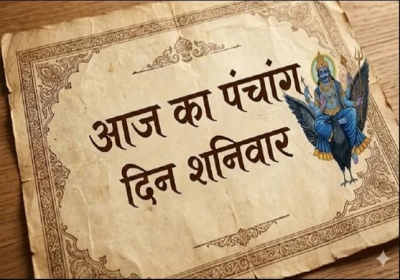 आज का पंचांग
दिन शनिवार